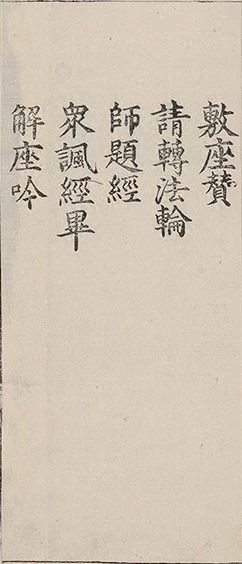 敷座賛
請轉法輪
師題經
衆諷經畢
解座吟